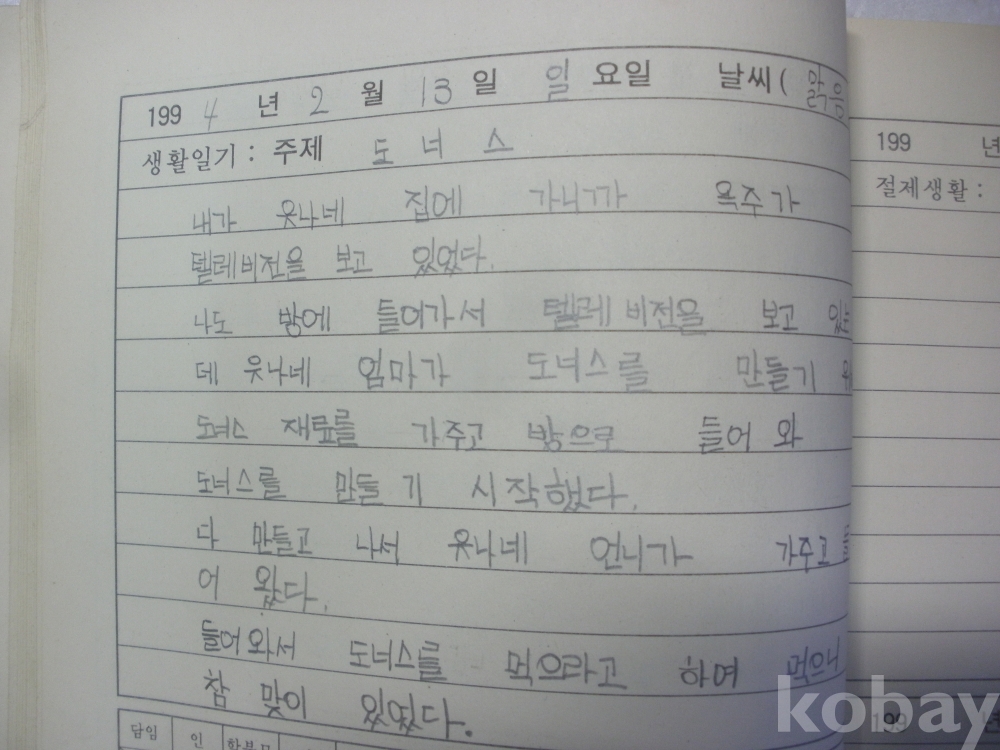 1994년 2월 13일 일요일 날씨(맑음
생활일기 : 주제 도너스
내가 윳나네 집에 가니까 욕주가
텔레비전을 보고 있었다.
나도 방에 들어가서 텔레비전을 보고 있는
데 윳나네 엄마가 도너스를 만들기
도너스 재료를 가주고 방으로 들어와
도너스를 만들기 시작했다.
다 만들고 나서 윳나네 언니가 가주고 들
어 왔다.
들어와서 도너스를 먹으라고 하며 먹으니
참 맞이 있었다.
담임 인 학부모
199 년
절제생활 :
199
kobay